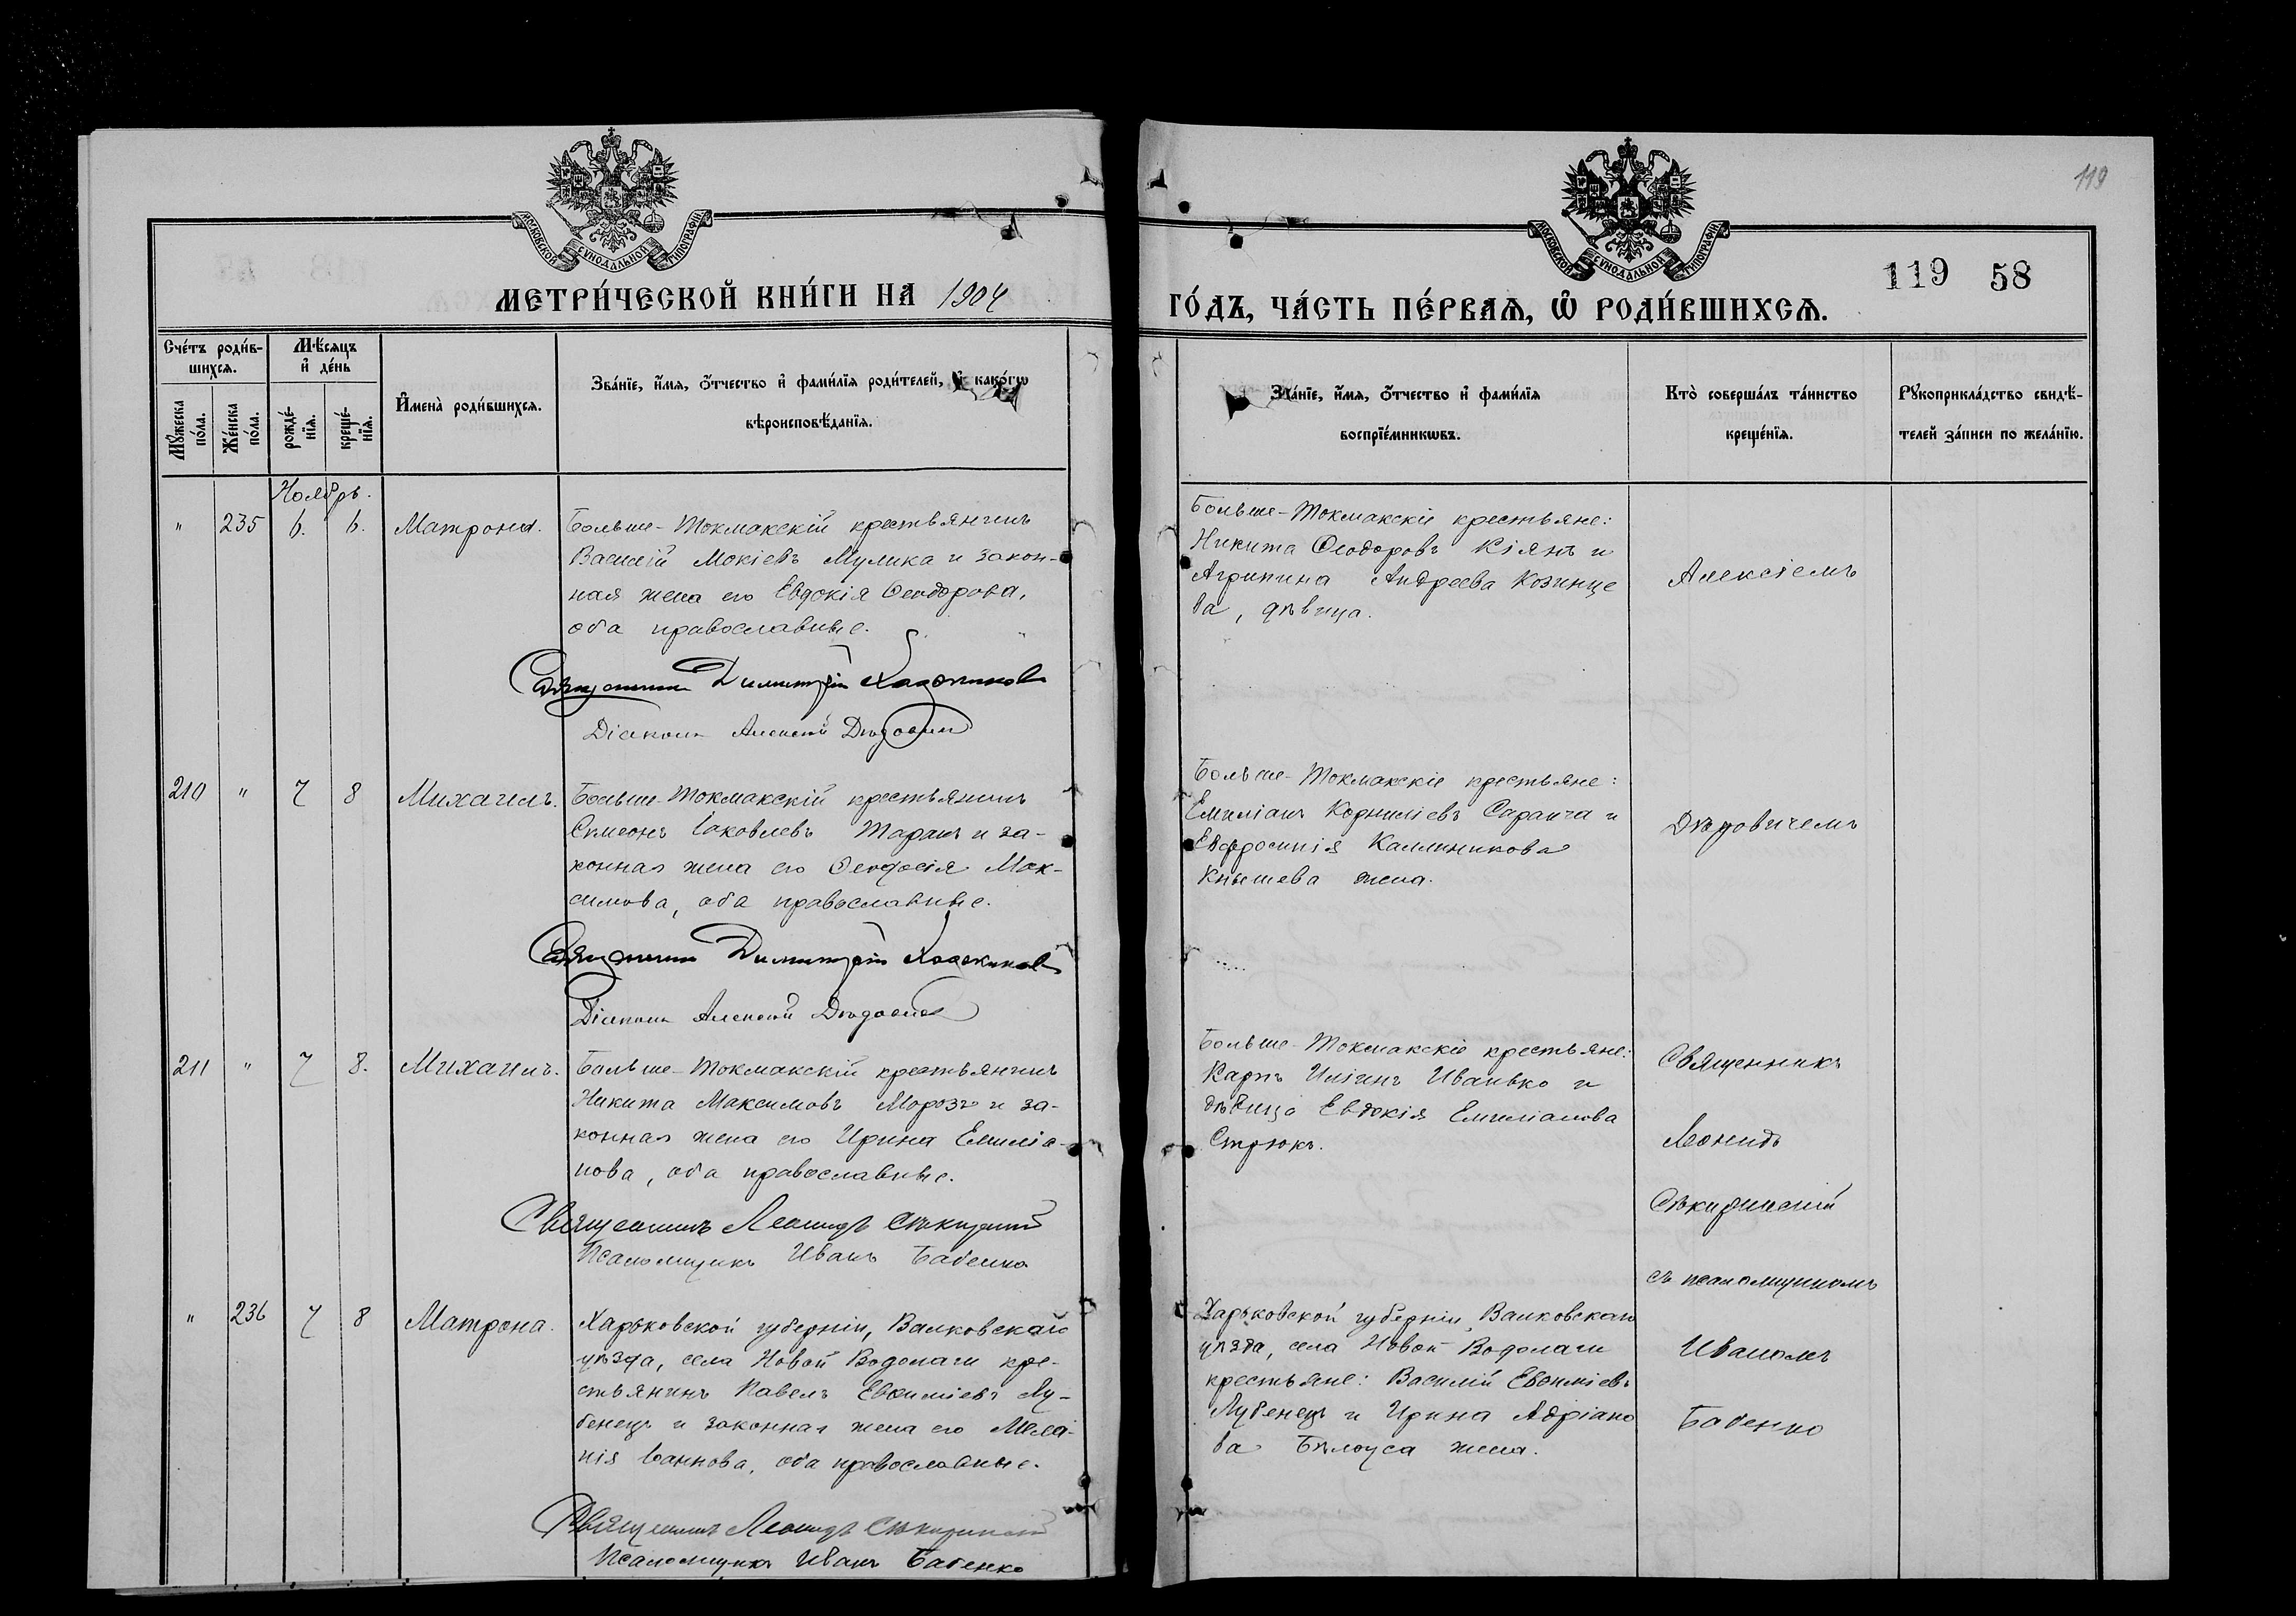 МОСКОВСКОЙ СѴНОДАЛЬНОЙ ТИПОГРАФІИ
МЕТРИ́ЧЕСКОЙ КНИ́ГИ НА 1904
Сче́тъ роди́в-
шихсѧ.
Мꙋ́жеска по́ла.
Же́нска по́ла.
Мѣ́сѧцъ и҆ де́нь
рожде́-нїѧ.
креще́-нїѧ.
И҆мена̀ роди́вшихсѧ.
Зва́нїе, и҆́мѧ, ѻ҆́тчество и҆ фами́лїѧ роди́телей, и҆ како́гѡ
вѣроисповѣ́данїѧ.
Ноябрь.
" 235 6. 6. Матрона.
Больше-Токмакскій крестьянинъ
Василій Мокіевъ Мулика и закон-
ная жена его Евдокія Ѳеодорова,
оба православные.
Священникъ Димитрій
Діаконъ Алексій Дѣдовичъ
210 " 7 8 Михаилъ.
Больше-Токмакскій крестьянинъ
Симеонъ Іаковлевъ Таранъ и за-
конная жена его Ѳеодосія Мак-
симова, оба православные.
Священникъ Димитрій
Діаконъ Алексій Дѣдовичъ
211 " 7 8. Михаилъ.
Больше-Токмакскій крестьянинъ
Никита Максимовъ Морозъ и за-
конная жена его Ирина Емиліа-
нова, оба православные.
Священникъ Леонидъ Сѣкиринскій
Псаломщикъ Иванъ Бабенко
" 236 7 8 Матрона.
Харьковской губерніи, Валковскаго
уѣзда, села Новой Водолаги кре-
стьянинъ Павелъ Евѳиміевъ Лу-
бенецъ и законная жена его Мела-
нія Іоаннова, оба православные.
Священникъ Леонидъ Сѣкиринскій
Псаломщикъ Иванъ Бабенко
119
МОСКОВСКОЙ СѴНОДАЛЬНОЙ ТИПОГРАФІИ
119 58
ГО́ДЪ, ЧА́СТЬ ПЕ́РВАѦ, Ѽ РОДИ́ВШИХСѦ.
Зва́нїе, и҆́мѧ, ѻ҆́тчество и҆ фами́лїѧ
воспрїе́мникѡвъ.
Кто̀ соверша́лъ та́инство
креще́нїѧ.
Рꙋкоприкла́дство свидѣ́-
телей за́писи по жела́нїю.
Больше-Токмакскіе крестьяне:
Никита Ѳеодоровъ Кіянъ и
Агрипина Андреева Козинце
ва, дѣвица.
Алексіемъ
Больше-Токмакскіе крестьяне:
Емиліанъ Корниліевъ Саранча и
Евфросинія Каллиникова
Кнышева жена.
Дѣдовичемъ
Больше-Токмакскіе крестьяне:
Карпъ Иліинъ Иванько и
дѣвица Евдокія Емиліанова
Стрюкъ.
Священникъ
Леонидъ
Сѣкиринскій
съ псаломщикомъ
Харьковской губерніи, Валковскаго
уѣзда, села Новой Водолаги
крестьяне: Василій Евѳиміевъ
Лубенецъ и Ирина Адріано
ва Бѣлоуса жена.
Иваномъ
Бабенко